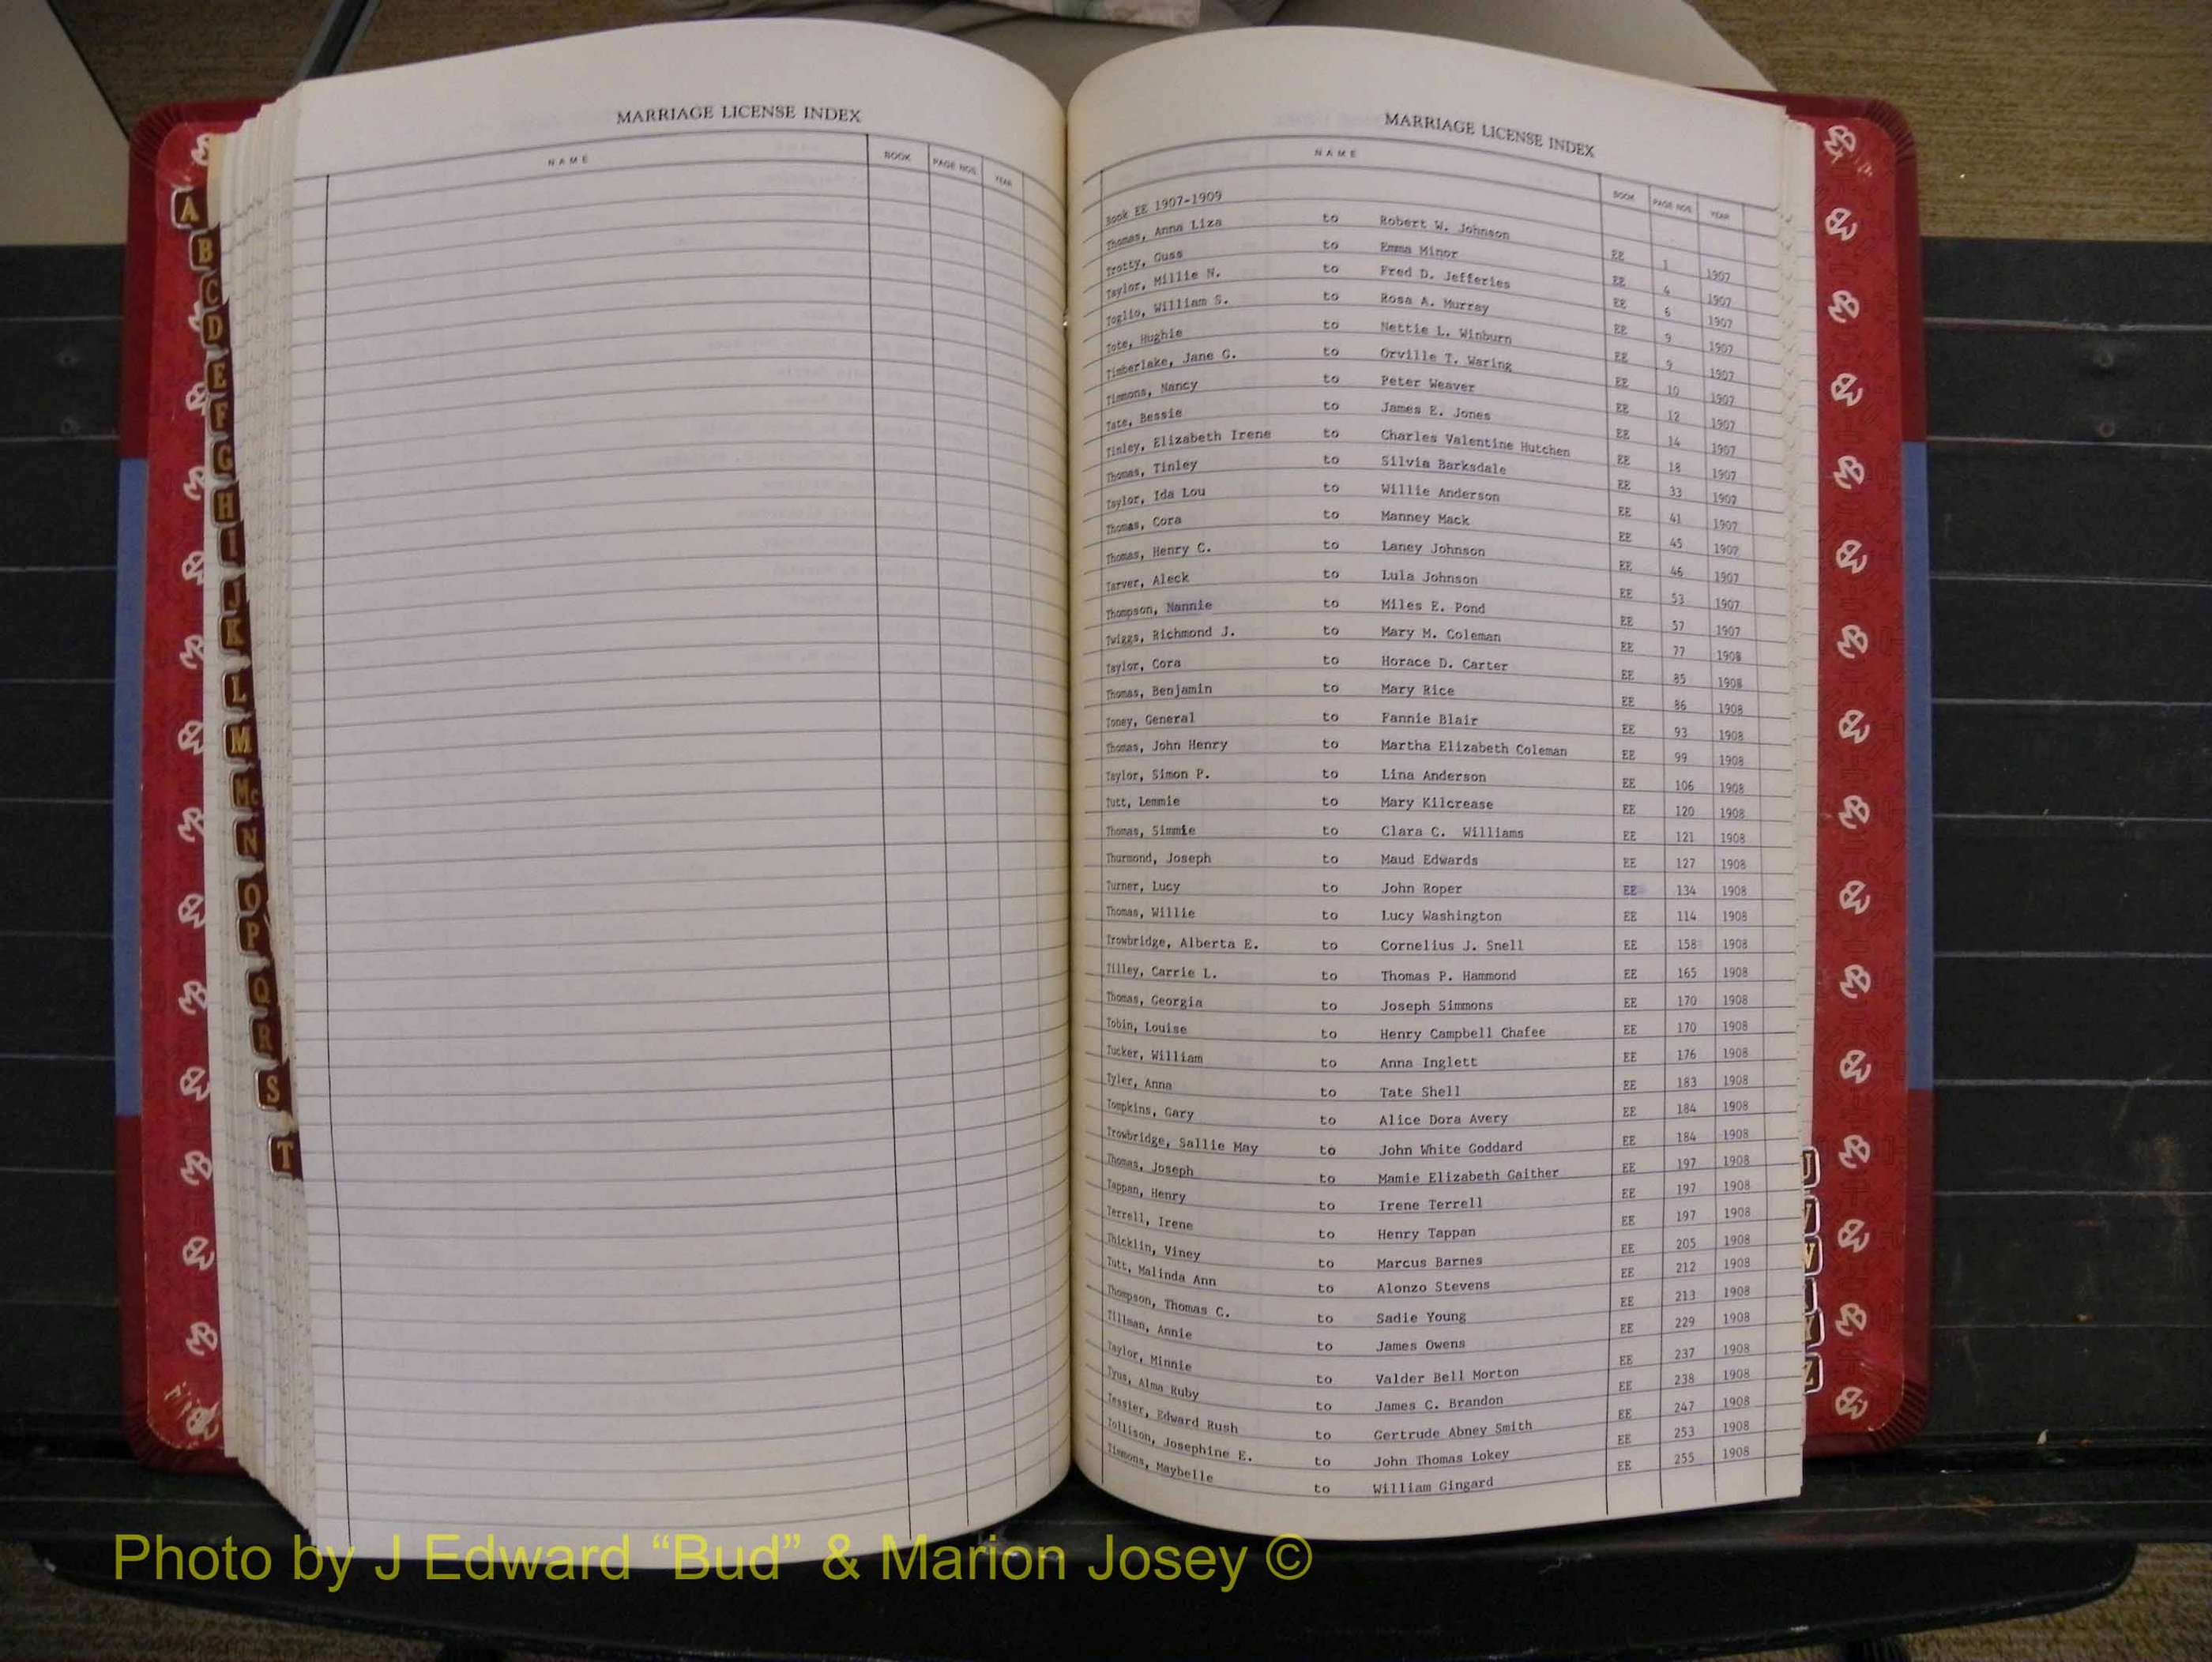 MARRIAGE LICENSE INDEX
NAME BOOK PAGE NOS. YEAR
A
B
C
D
E
F
G
H
I
J
K
L
M
Mc
N
O
P
Q
R
S
T
MARRIAGE LICENSE INDEX
NAME BOOK PAGE NOS. YEAR
Book EE 1907-1909
Thomas, Anna Liza to Robert W. Johnson EE 1 1907
Trotty, Guss to Emma Minor EE 4 1907
Taylor, Millie N. to Fred D. Jefferies EE 6 1907
Toglio, William S. to Rosa A. Murray EE 9 1907
Tote, Hughie to Nettie L. Winburn EE 9 1907
Timberlake, Jane G. to Orville T. Waring EE 10 1907
Timmons, Nancy to Peter Weaver EE 12 1907
Tate, Bessie to James E. Jones EE 14 1907
Tinley, Elizabeth Irene to Charles Valentine Hutchen EE 18 1907
Thomas, Tinley to Silvia Barksdale EE 33 1907
Taylor, Ida Lou to Willie Anderson EE 41 1907
Thomas, Cora to Manney Mack EE 45 1907
Thomas, Henry C. to Laney Johnson EE 46 1907
Tarver, Aleck to Lula Johnson EE 53 1907
Thompson, Nannie to Miles E. Pond EE 57 1907
Twiggs, Richmond J. to Mary M. Coleman EE 77 1908
Taylor, Cora to Horace D. Carter EE 85 1908
Thomas, Benjamin to Mary Rice EE 86 1908
Toney, General to Fannie Blair EE 93 1908
Thomas, John Henry to Martha Elizabeth Coleman EE 99 1908
Taylor, Simon P. to Lina Anderson EE 106 1908
Tutt, Lemmie to Mary Kilcrease EE 120 1908
Thomas, Simmie to Clara C. Williams EE 121 1908
Thurmond, Joseph to Maud Edwards EE 127 1908
Turner, Lucy to John Roper EE 134 1908
Thomas, Willie to Lucy Washington EE 114 1908
Trowbridge, Alberta E. to Cornelius J. Snell EE 158 1908
Tilley, Carrie L. to Thomas P. Hammond EE 165 1908
Thomas, Georgia to Joseph Simmons EE 170 1908
Tobin, Louise to Henry Campbell Chafee EE 170 1908
Tucker, William to Anna Inglett EE 176 1908
Tyler, Anna to Tate Shell EE 183 1908
Tompkins, Gary to Alice Dora Avery EE 184 1908
Trowbridge, Sallie May to John White Goddard EE 184 1908
Thomas, Joseph to Mamie Elizabeth Gaither EE 197 1908
Tappan, Henry to Irene Terrell EE 197 1908
Terrell, Irene to Henry Tappan EE 197 1908
Thicklin, Viney to Marcus Barnes EE 205 1908
Tutt, Malinda Ann to Alonzo Stevens EE 212 1908
Thompson, Thomas C. to Sadie Young EE 213 1908
Tillman, Annie to James Owens EE 229 1908
Taylor, Minnie to Valder Bell Morton EE 237 1908
Tyus, Alma Ruby to James C. Brandon EE 238 1908
Tessier, Edward Rush to Gertrude Abney Smith EE 247 1908
Tollison, Josephine E. to John Thomas Lokey EE 253 1908
Timmons, Maybelle to William Gingard EE 255 1908
U
V
W
Y
Z
Photo by J Edward “Bud” & Marion Josey ©